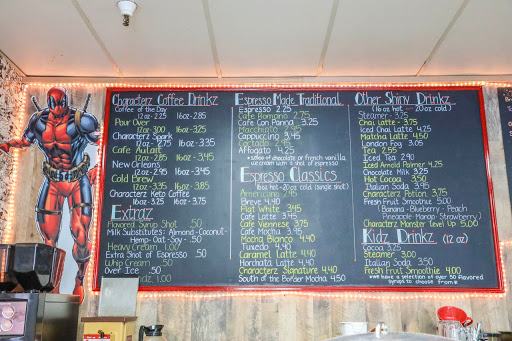 Characterz Coffee Drinkz
Coffee of the Day
12oz 2.25 16oz 2.85
Pour Over
12oz 3.00 16oz 3.25
Characterz Spark
12oz 2.95 16oz 3.45
Cafe AuLait
12oz 2.85 16oz 3.45
New Orleans
12oz 3.15 16oz 3.45
Cold Brew
12oz 3.35 16oz 3.85
Characterz Keto Coffee
12oz 3.50 16oz 4.05
Extraz
Flavored Syrup Shot .50
Milk Substitutes Almond-Coconut-
Hemp-Oat-Soy .50
Heavy Cream 1.00
Extra Shot of Espresso .50
Whip Cream .50
Over Ice .50
Espresso Made Traditional
Espresso 2.25
Cafe Romano 2.75
Cafe Con Panna 3.25
Macchiato
Cappuccino 3.45
Cortado
Affogato 3.45
scoop of chocolate or french vanilla
ice cream with a shot of espresso
Espresso Classics
16oz hot - 20oz cold (single shot)
Americano 2.95
Breve 4.40
Flat White 3.45
Cafe Latte 3.45
Cafe Viennese 3.75
Cafe Mocha 3.95
Mocha Bianco 4.40
Caramel Latte 4.40
Horchata Latte 4.40
Characterz Signature 4.40
South of the Border Mocha 4.40
Other Shiny Drinkz
(16oz hot - 20oz cold)
Steamer 3.25
Chai Latte - 3.75
Iced Chai Latte 4.25
Matcha Latte 4.50
London Fog 3.25
Tea 2.55
Iced Tea 2.90
Iced Arnold Palmer 4.25
Chocolate Milk 3.25
Hot Cocoa 3.50
Italian Soda 3.45
Characterz Potion 3.75
Fresh Fruit Smoothie 5.00
Banana - Blueberry - Peach
Pineapple Mango - Strawberry
Characterz Monster Level Up 5.00
Kidz Drinkz (12 oz)
Cocoa 3.25
Steamer 3.00
Italian Soda 3.50
Fresh Fruit Smoothie 4.00
we have a selection of over 50 flavored
syrups to choose from